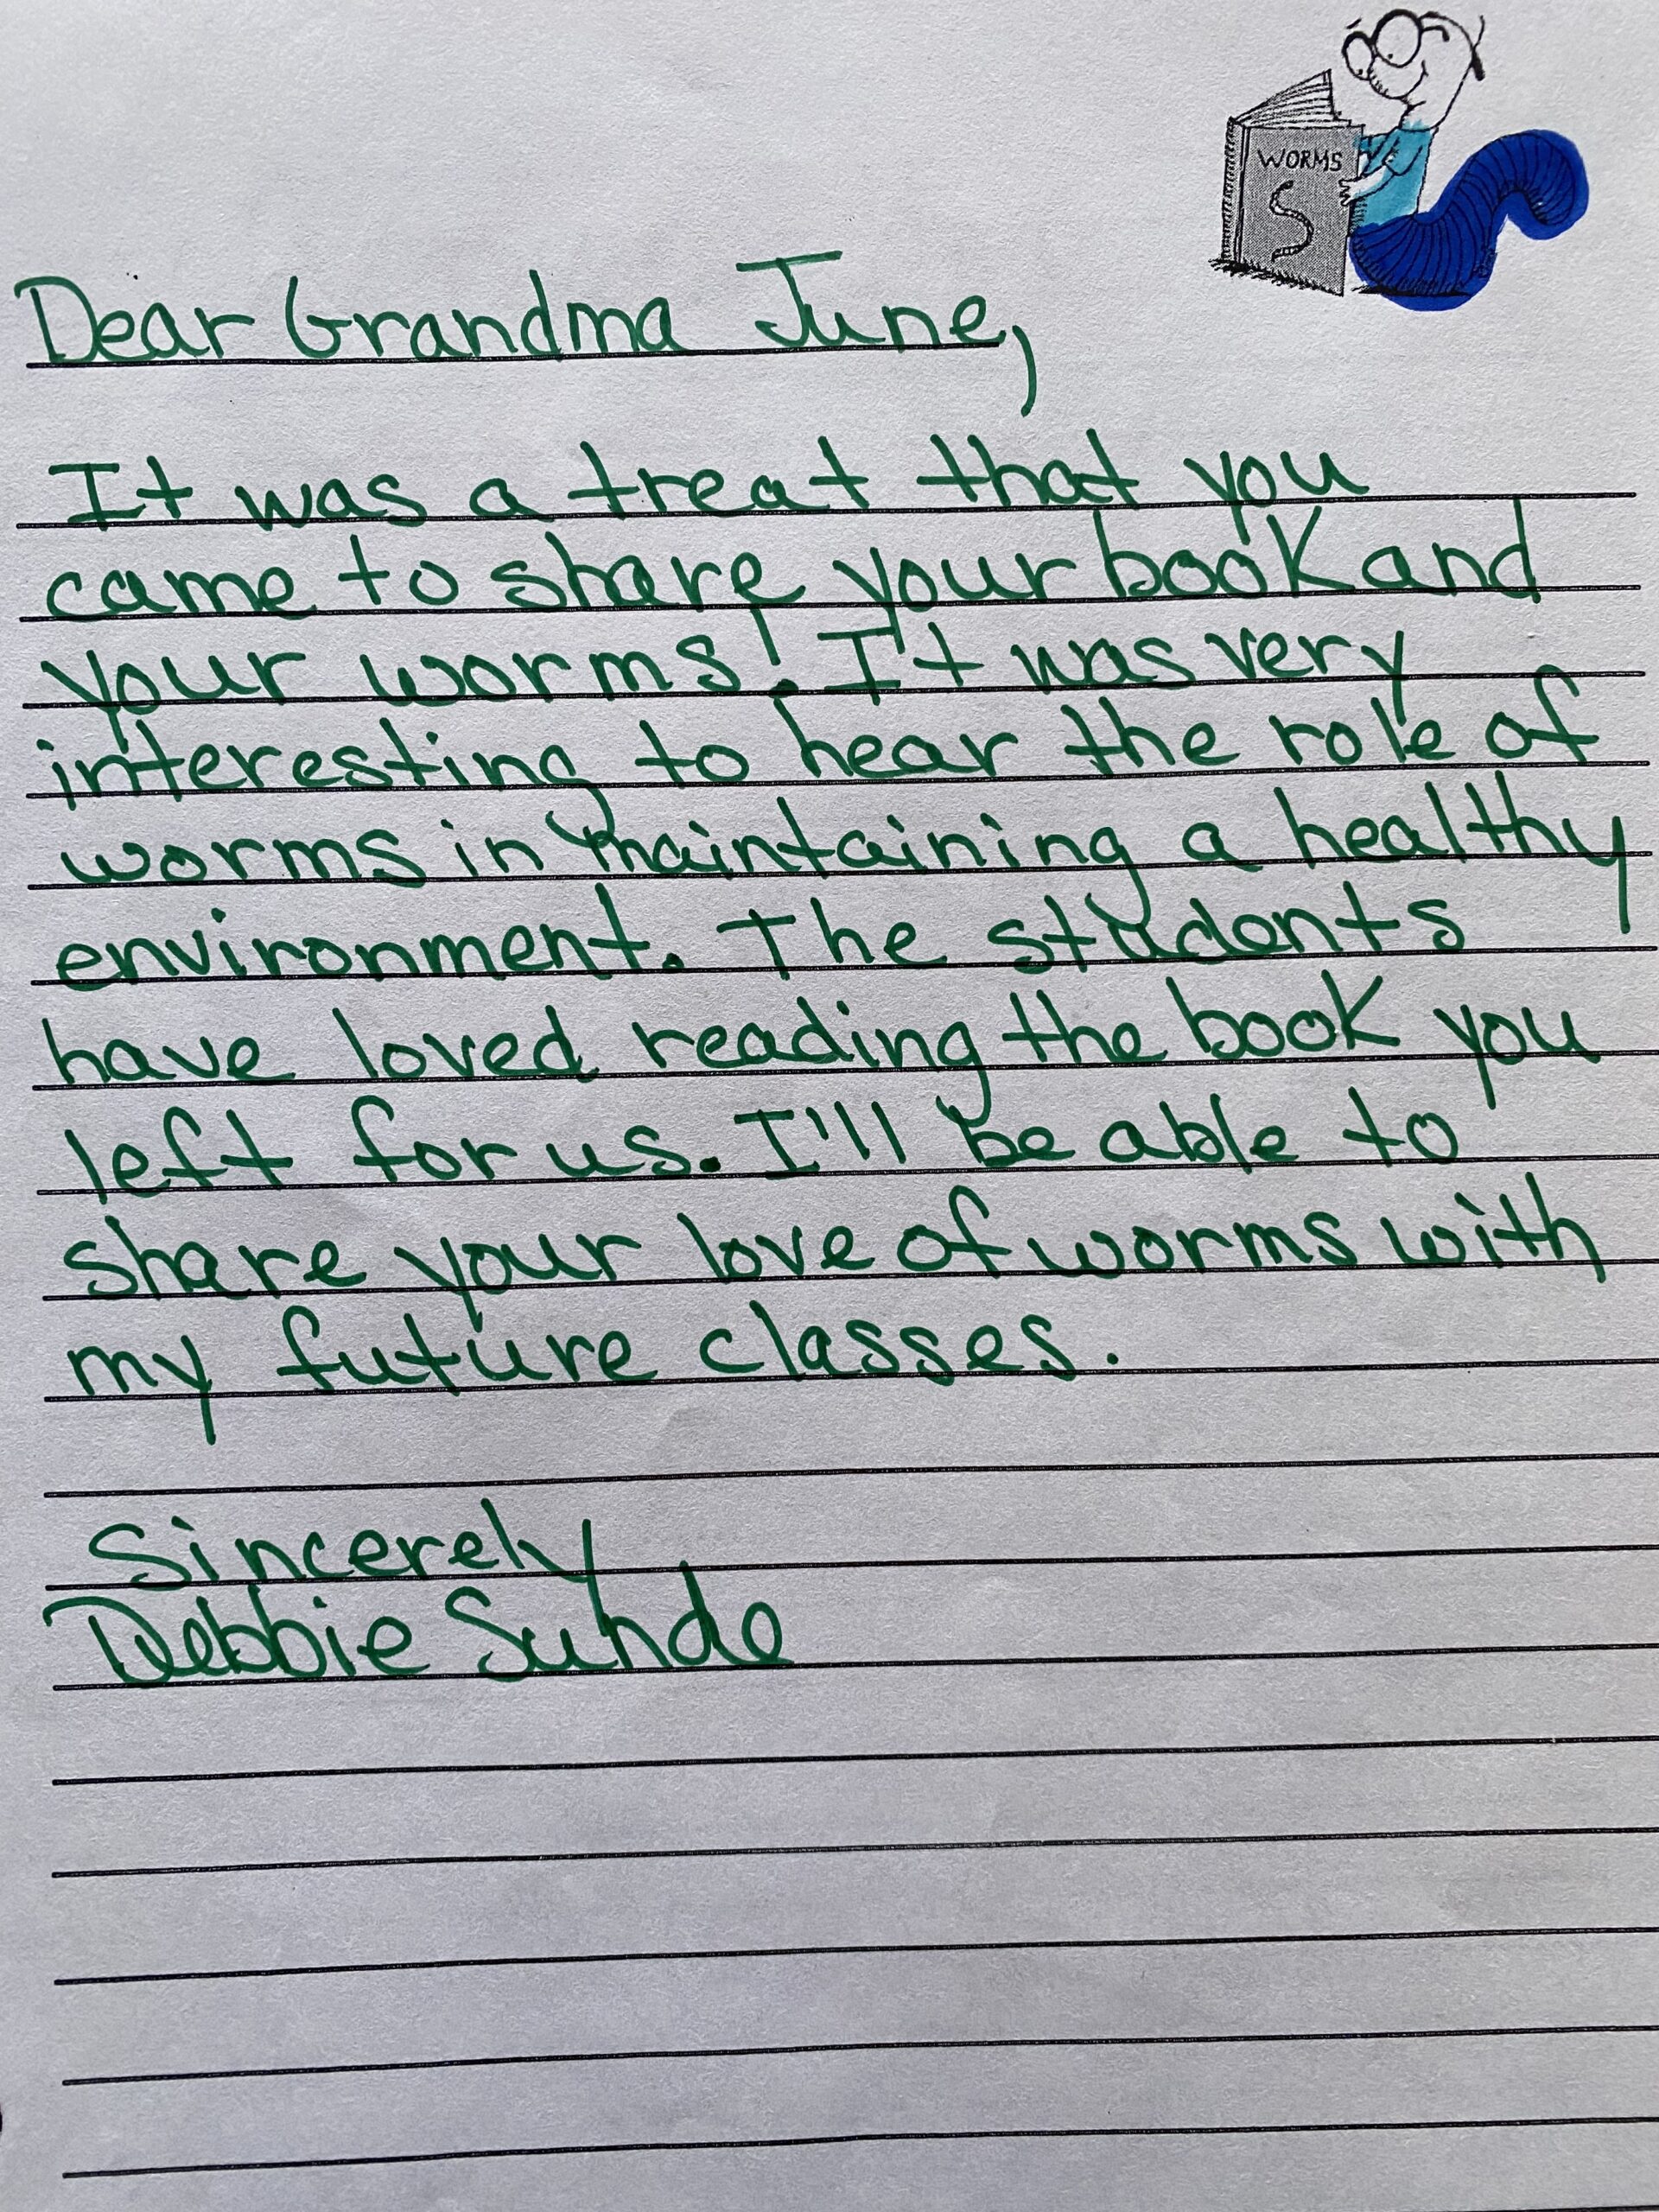 WORMS
Dear Grandma June,
It was a treat that you
came to share your book and
your worms! It was very
interesting to hear the role of
worms in maintaining a healthy
environment. The students
have loved reading the book you
left for us. I'll be able to
share your love of worms with
my future classes.
Sincerely
Debbie Sunde